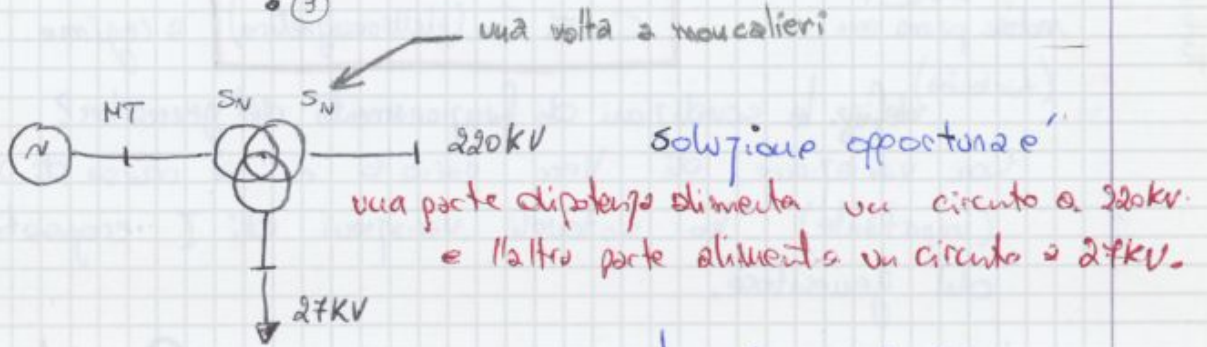 3
una volta a moncalieri
MT SN SN
N
220KV soluzione opportuna e'
una parte di potenza alimenta un circuito a 220kV.
e l'altra parte alimenta un circuito a 27kV.
27KV